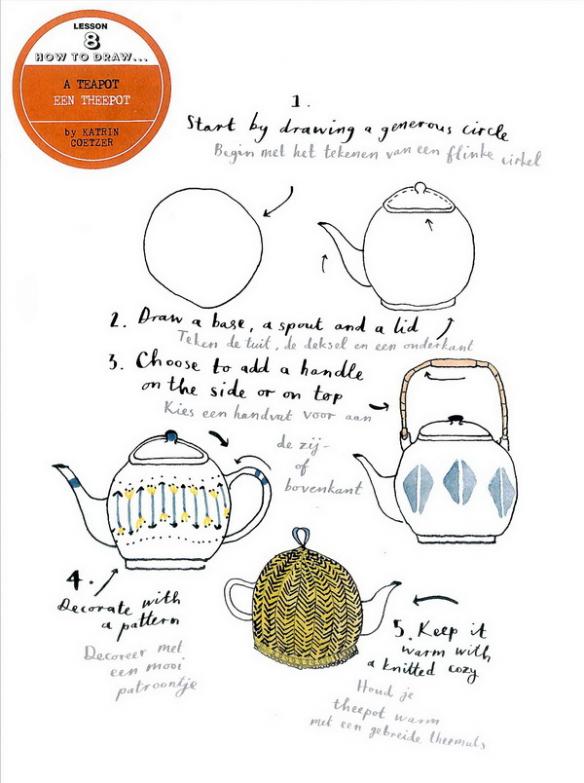 LESSON
8
HOW TO DRAW...
A TEAPOT
EEN THEEPOT
by KATRIN
COETZER
1.
Start by drawing a generous circle
Begin met het tekenen van een flinke cirkel
2. Draw a base, a spout and a lid
Teken de tuit, de deksel en een onderkant
3. Choose to add a handle
on the side or on top
Kies een handvat voor aan
de zij-
of
bovenkant
4.
Decorate with
a pattern
Decoreer met
een mooi
patroontje
5. Keep it
warm with
a knitted cozy
Houd je
theepot warm
met een gebreide theemuts